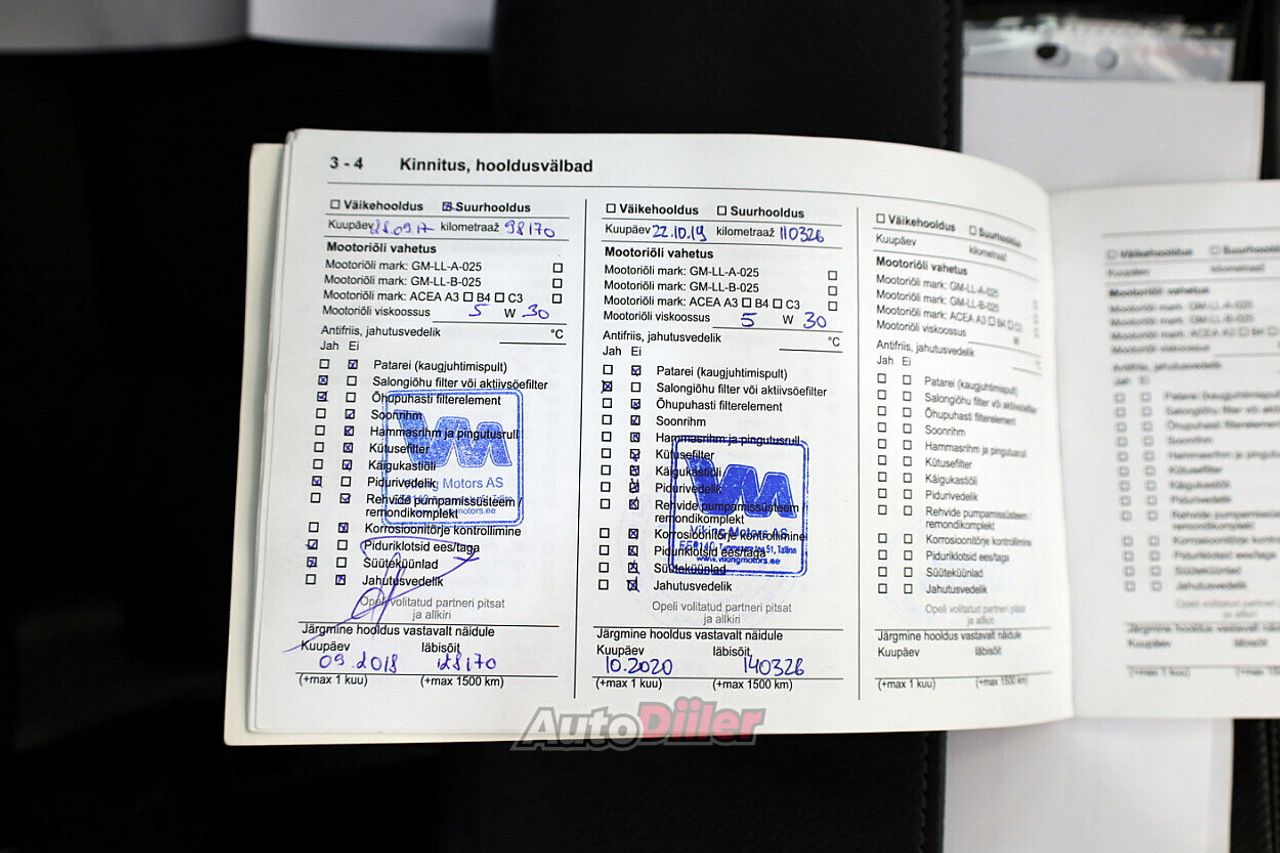 3 - 4 Kinnitus, hooldusvälbad
☐ Väikehooldus ☒ Suurhooldus
Kuupäev 28.09.17 kilometraaž 98170
Mootoriõli vahetus
Mootoriõli mark: GM-LL-A-025 ☐
Mootoriõli mark: GM-LL-B-025 ☐
Mootoriõli mark: ACEA A3 ☐ B4 ☐ C3 ☐
Mootoriõli viskoossus 5 W 30
Antifriis, jahutusvedelik °C
Jah Ei
Patarei (kaugjuhtimispult)
Salongiõhu filter või aktiivsöefilter
Õhupuhasti filterelement
Soonrihm
Hammasrihm ja pingutusrull
Kütusefilter
Käigukastiõli
Pidurivedelik
Rehvide pumpamissüsteem /
remondikomplekt
Korrosioonitõrje kontrollimine
Piduriklotsid ees/taga
Süüteküünlad
Jahutusvedelik
VM
Viking Motors AS
Opeli volitatud partneri pitsat
ja allkiri
Järgmine hooldus vastavalt näidule
Kuupäev läbisõit
09.2018 128170
(+max 1 kuu) (+max 1500 km)
☐ Väikehooldus ☐ Suurhooldus
Kuupäev 22.10.19 kilometraaž 110326
Mootoriõli vahetus
Mootoriõli mark: GM-LL-A-025 ☐
Mootoriõli mark: GM-LL-B-025 ☐
Mootoriõli mark: ACEA A3 ☐ B4 ☐ C3 ☐
Mootoriõli viskoossus 5 W 30
Antifriis, jahutusvedelik °C
Jah Ei
Patarei (kaugjuhtimispult)
Salongiõhu filter või aktiivsöefilter
Õhupuhasti filterelement
Soonrihm
Hammasrihm ja pingutusrull
Kütusefilter
Käigukastiõli
Pidurivedelik
Rehvide pumpamissüsteem /
remondikomplekt
Korrosioonitõrje kontrollimine
Piduriklotsid ees/taga
Süüteküünlad
Jahutusvedelik
VM
Viking Motors AS
Tammsaare tee 51, Tallinn
www.vikingmotors.ee
Opeli volitatud partneri pitsat
ja allkiri
Järgmine hooldus vastavalt näidule
Kuupäev läbisõit
10.2020 140326
(+max 1 kuu) (+max 1500 km)
☐ Väikehooldus ☐ Suurhooldus
Kuupäev kilometraaž
Mootoriõli vahetus
Mootoriõli mark: GM-LL-A-025
Mootoriõli mark: GM-LL-B-025
Mootoriõli mark: ACEA A3 ☐ B4 ☐ C3
Mootoriõli viskoossus W
Antifriis, jahutusvedelik °C
Jah Ei
Patarei (kaugjuhtimispult)
Salongiõhu filter või aktiivsöefilter
Õhupuhasti filterelement
Soonrihm
Hammasrihm ja pingutusrull
Kütusefilter
Käigukastiõli
Pidurivedelik
Rehvide pumpamissüsteem /
remondikomplekt
Korrosioonitõrje kontrollimine
Piduriklotsid ees/taga
Süüteküünlad
Jahutusvedelik
Opeli volitatud partneri pitsat
ja allkiri
Järgmine hooldus vastavalt näidule
Kuupäev läbisõit
(+max 1 kuu) (+max 1500 km)
AutoDiiler